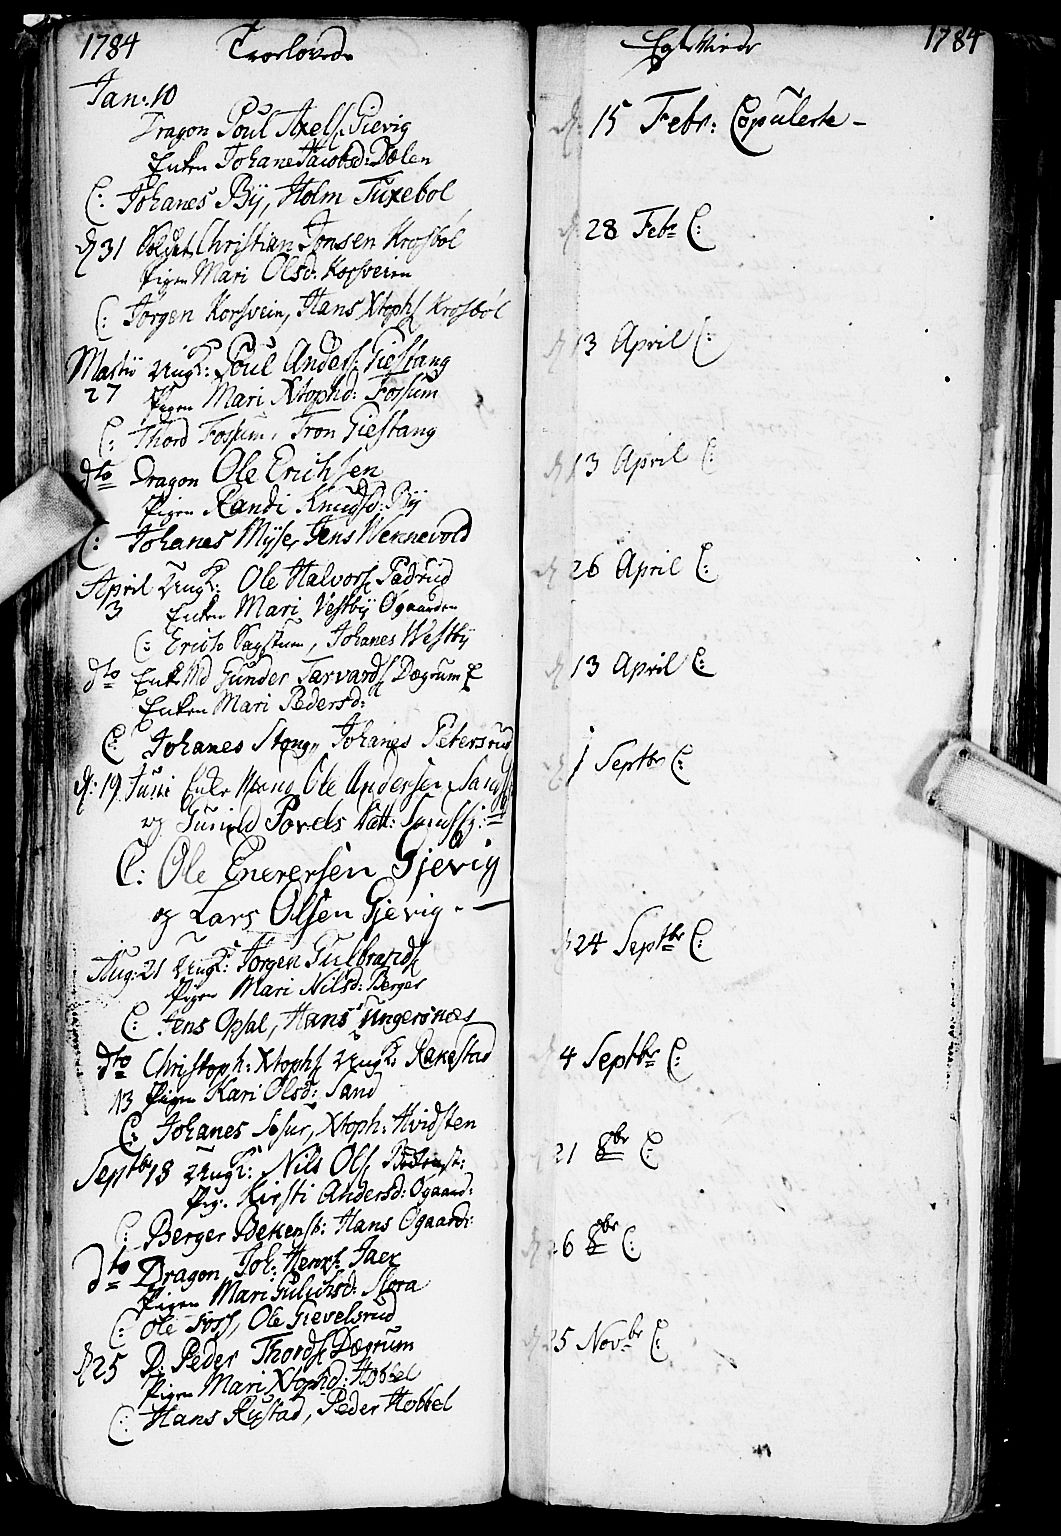 1784 Troelovede
Jan: 10
Dragon Poul Axels. Gievig
Enken Johane Jacobsd: Dælen
C: Johanes Bÿ, Holm Tuxebol
d 31 Soldat Christian Jonsen Krosbøl
Pigen Mari Olsd: Korsveien
C: Jørgen Korsvein, Hans Xtophs Krosbøl
Martii Ungk: Poul Anders: Giestang
27 Pigen Mari Xtophd: Fossum
C: Thord Fossum, Tron Giestang
dto Dragon Ole Erichsen
Pigen Randi Knudsd: Bÿ
C: Johanes Mÿse, Jens Wennevold
April Ungk: Ole Halvors Padrud
3 Enken Mari Vestbÿ Øgaarden
C: Erich Sagstuen, Johanes Westbÿ
dto Enkemd Gunder Tarvards Dægrum
Enken Mari Pedersd:
C: Johanes Stang, Johanes Petersrud
d: 19 Juni Enkemand Ole Andersen Sands
og Gunild Povels Datt:
C: Ole Enersen Gjevig
og Lars Olsen Gjevig. —
Aug: 21 Ungk: Jørgen Gulbrands
Pigen Mari Nilsd: Berger
C: Jens Opsal, Hans Ungersnæs
dto Christoph: Xtophs Ungk: Rakestad
13 Pigen Kari Olsd: Sand
C: Johanes Sosur, Xtoph: Hvidsten
Septbr 18 Ungk: Nils Ols
Pig. Kirsti Andersd: Øgaard:
C: Berger Bekenst: Hans Øgaard:
dto Dragon Joh: Henr: Jaer
Pigen Mari Gulichsd: Slora
C: Ole Foss, Ole Gievelsrud
d 25 D: Peder Thords Dægrum
Pigen Mari Xtophd: Hobbel
C: Hans Rustad, Peder Hobbel
Egte Viede 1784
d: 15 Febr: Copulerte -
d: 28 Febr C:
d 13 April C:
d 13 April C:
d 26 April C:
d 13 April C:
d 1 Septbr C:
d 24 Septbr C:
d 4 Septbr C:
d 21 8br C:
d 26 8br C:
d 25 Novbr C: